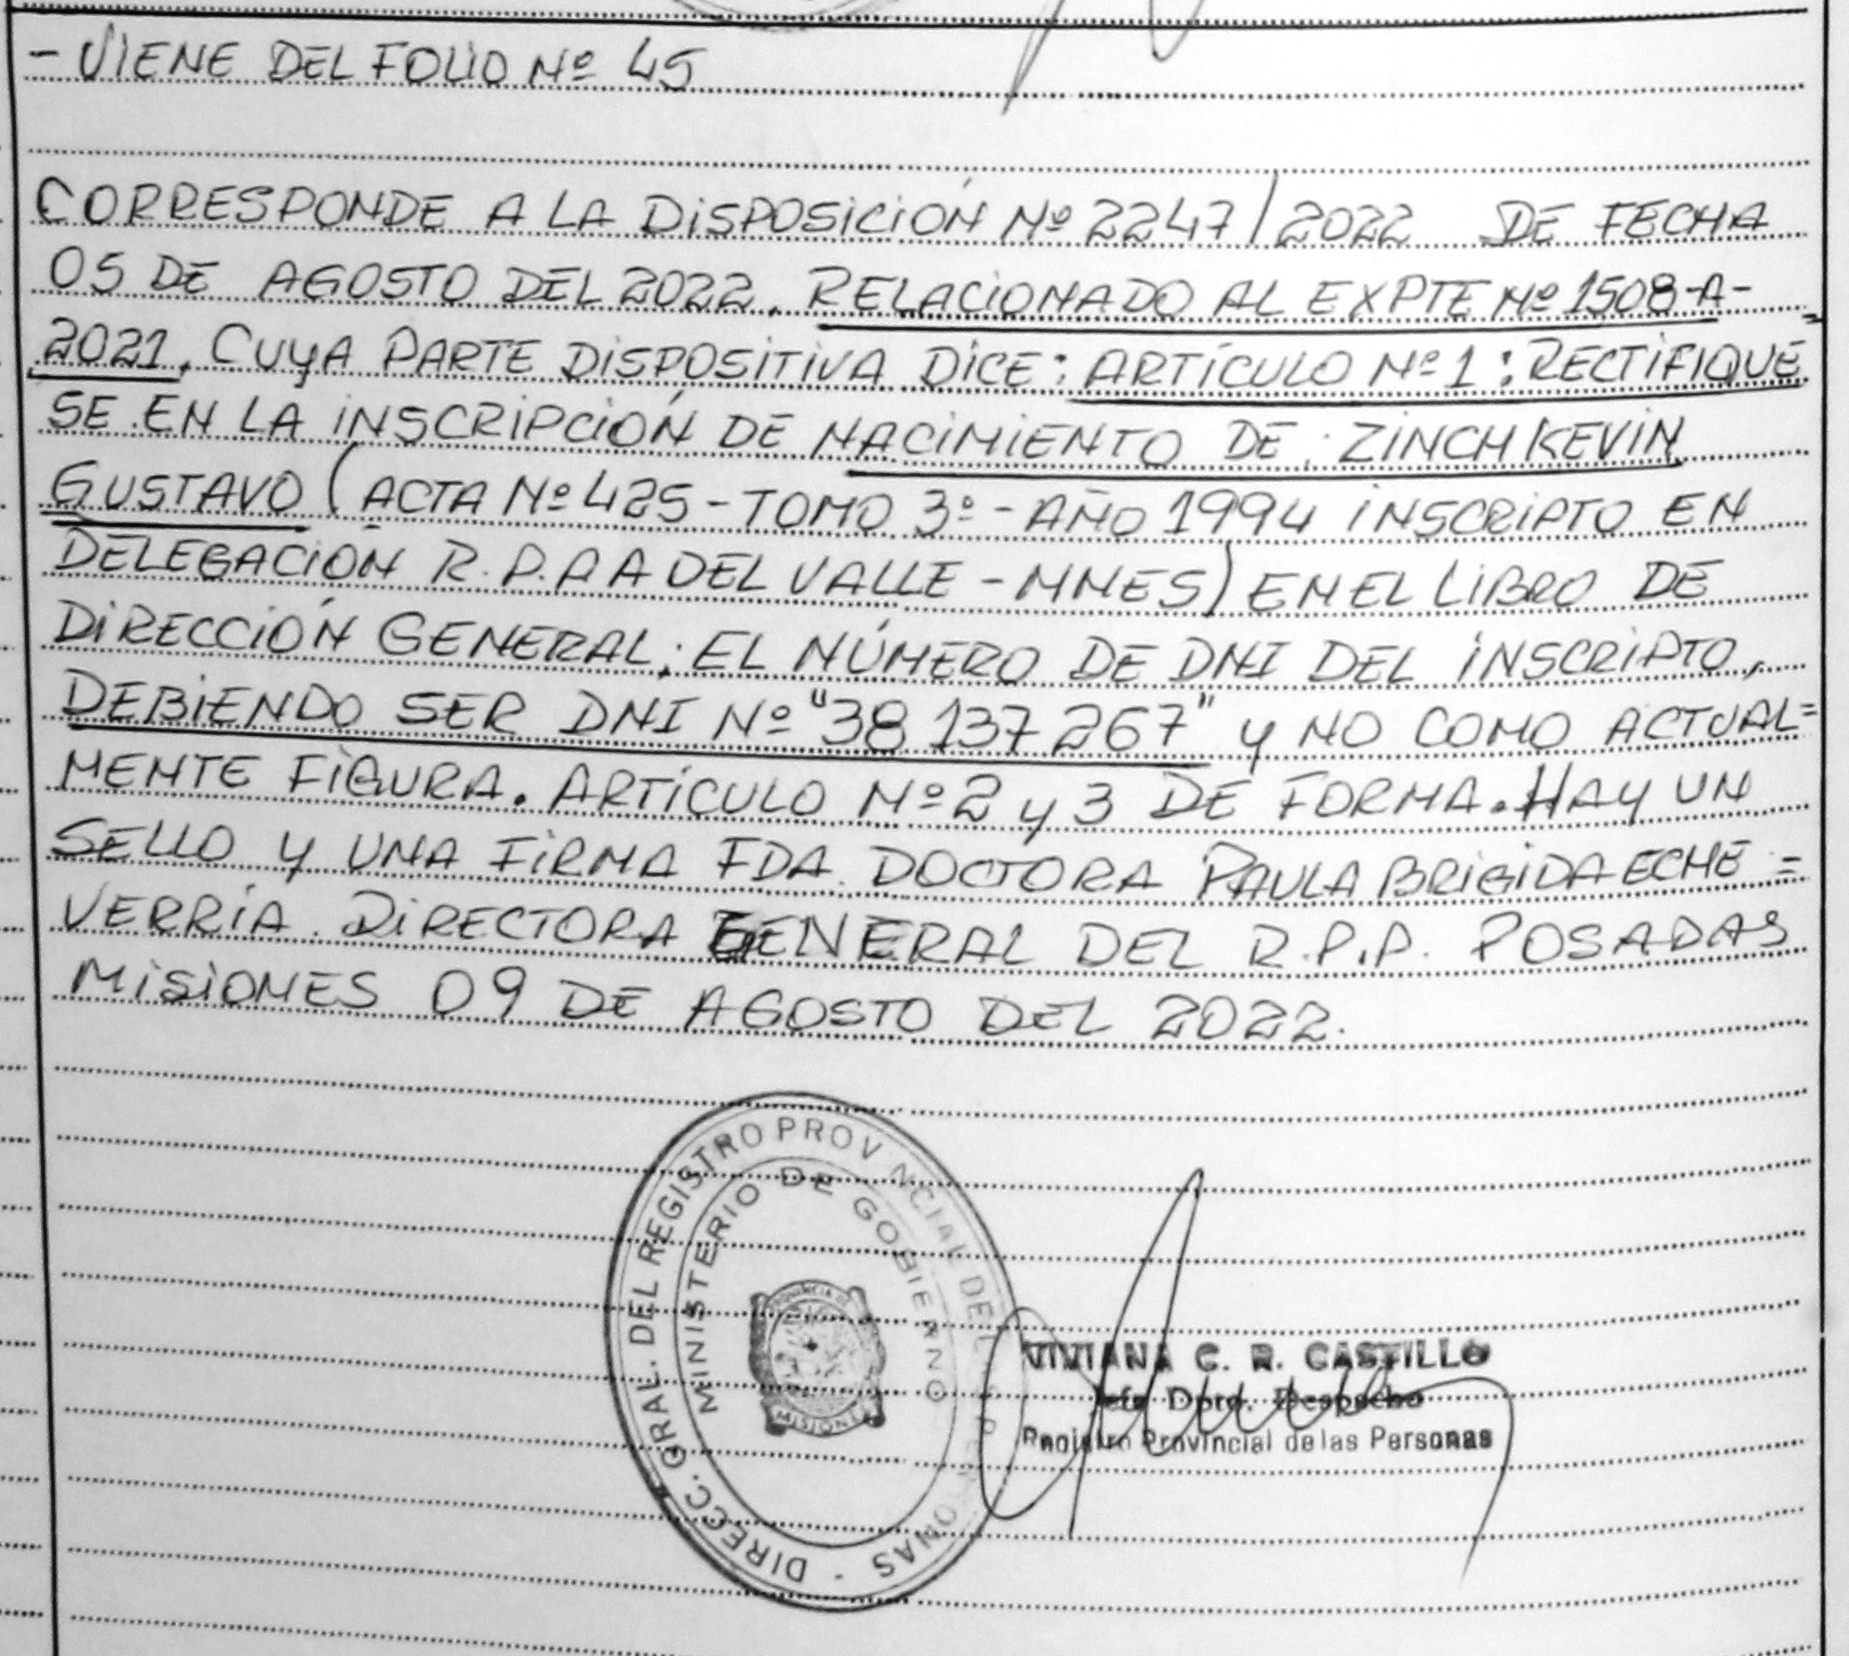 - VIENE DEL FOLIO Nº 45
CORRESPONDE A LA DISPOSICIÓN Nº 2247/2022 DE FECHA
05 DE AGOSTO DEL 2022. RELACIONADO AL EXPTE Nº 1508-A-
2021, CUYA PARTE DISPOSITIVA DICE: ARTÍCULO Nº 1: RECTIFIQUE
SE EN LA INSCRIPCIÓN DE NACIMIENTO DE: ZINCH KEVIN
GUSTAVO (ACTA Nº 425 - TOMO 3º - AÑO 1994 INSCRIPTO EN
DELEGACIÓN R.P.P A DEL VALLE - MNES) EN EL LIBRO DE
DIRECCIÓN GENERAL; EL NÚMERO DE DNI DEL INSCRIPTO,
DEBIENDO SER DNI Nº "38 137 267" Y NO COMO ACTUAL=
MENTE FIGURA. ARTÍCULO Nº 2 Y 3 DE FORMA. HAY UN
SELLO Y UNA FIRMA FDA. DOCTORA PAULA BRIGIDA ECHE=
VERRÍA. DIRECTORA GENERAL DEL R.P.P. POSADAS
MISIONES 09 DE AGOSTO DEL 2022.
DIRECC. GRAL. DEL REGISTRO PROVINCIAL DE LAS PERSONAS -
MINISTERIO DE GOBIERNO
PROVINCIA DE
MISIONES
VIVIANA C. R. CASTILLO
Jefe Dpto. Despacho
Registro Provincial de las Personas